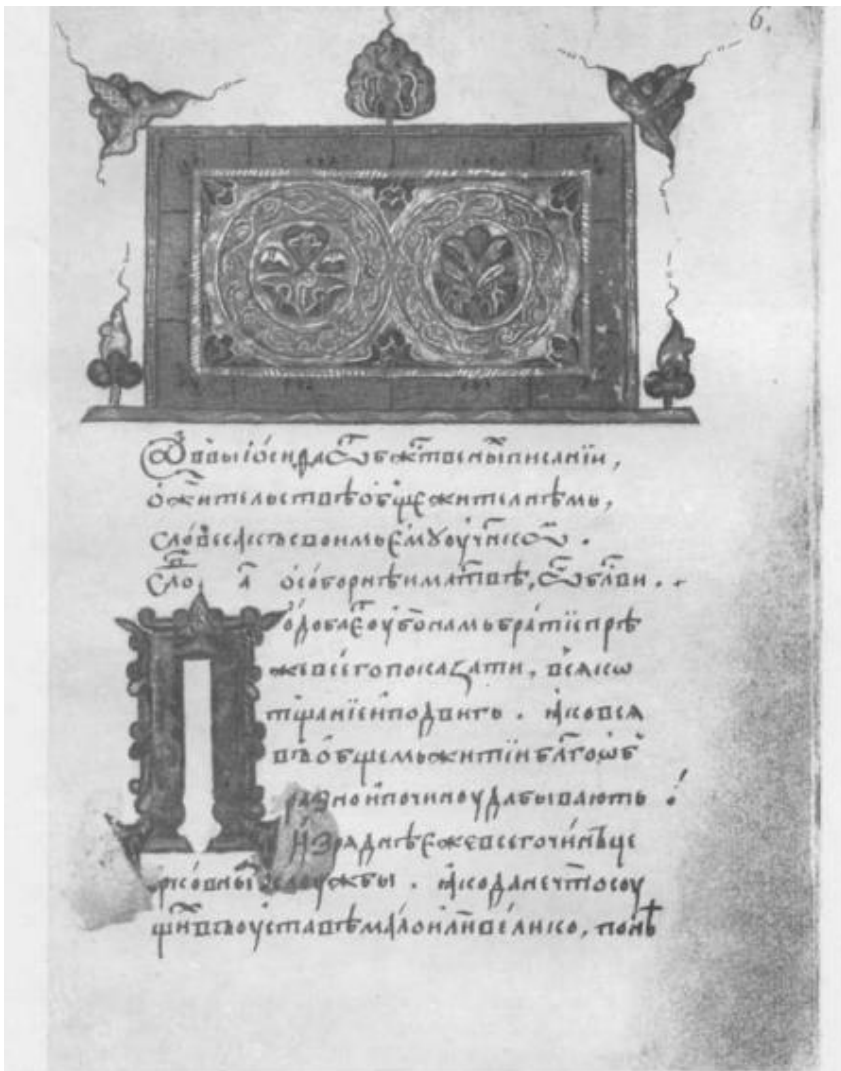 6.
Аввы іосифа ѿ бжⷭ҇твеныⷯ писаніи,
ѻ жи́тельствѣ ѻбщежителнѣмь,
сло́ сьвоимь емꙋ оучн҃кѡⷨ.
Сло́в, а҃ ѻ соборнѣи мл҃твѣ, ѿ бл҃ви.
Подобаеⷮ оубо намь братіе прѣ
же всего показати, всꙗко
тщаніе и подвигь. ꙗко всѧ
въ ѻбщемь житіи бл҃гоѡб
разно и по чиноу да бывають
И́зрѧднѣ еже все го чинꙋ це
рковныⷯ слоужбы. ꙗко да не что соу
щиⷯ въ оуставѣ мало или велико, понѣ